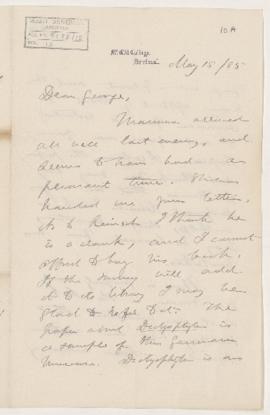 10A
McGill College,
Montreal.
May 15/85
Dear George,
Mamma arrived
all well last evening, and
seems to have had a
pleasant time. William
handed me your letter.
As to Reinsch I think he
is a crank, and I cannot
afford to buy his book.
If the Survey will add
it to its library I may be
glad to refer to it. The
paper about Dictyophyton is
a sample of this German
Dictyophyton is an